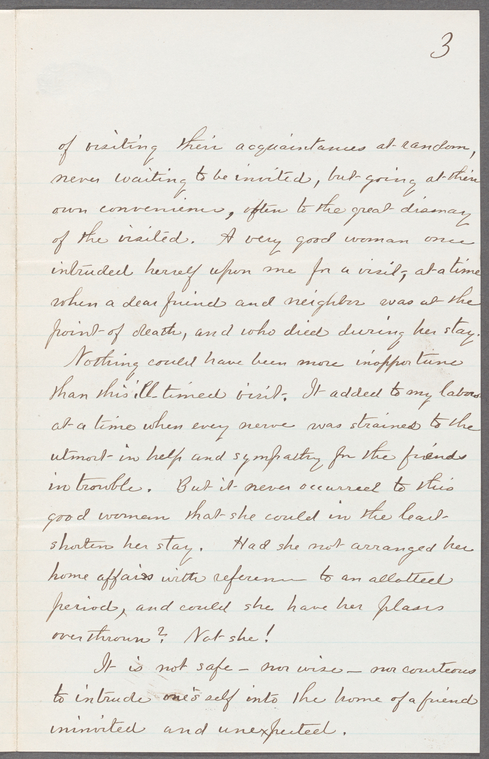 3
of visiting their acquaintances at random,
never waiting to be invited, but going at their
own convenience, often to the great dismay
of the visited. A very good woman once
intruded herself upon me for a visit, at a time
when a dear friend and neighbor was at the
point of death, and who died during her stay.
Nothing could have been more inopportune
than this ill-timed visit. It added to my labors
at a time when every nerve was strained to the
utmost in help and sympathy for the friends
in trouble. But it never occurred to this
good woman that she could in the least
shorten her stay. Had she not arranged her
home affairs with reference to an allotted
period, and could she have her plans
overthrown? Not she!
It is not safe — nor wise — nor courteous
to intrude one's self into the home of a friend
uninvited and unexpected.